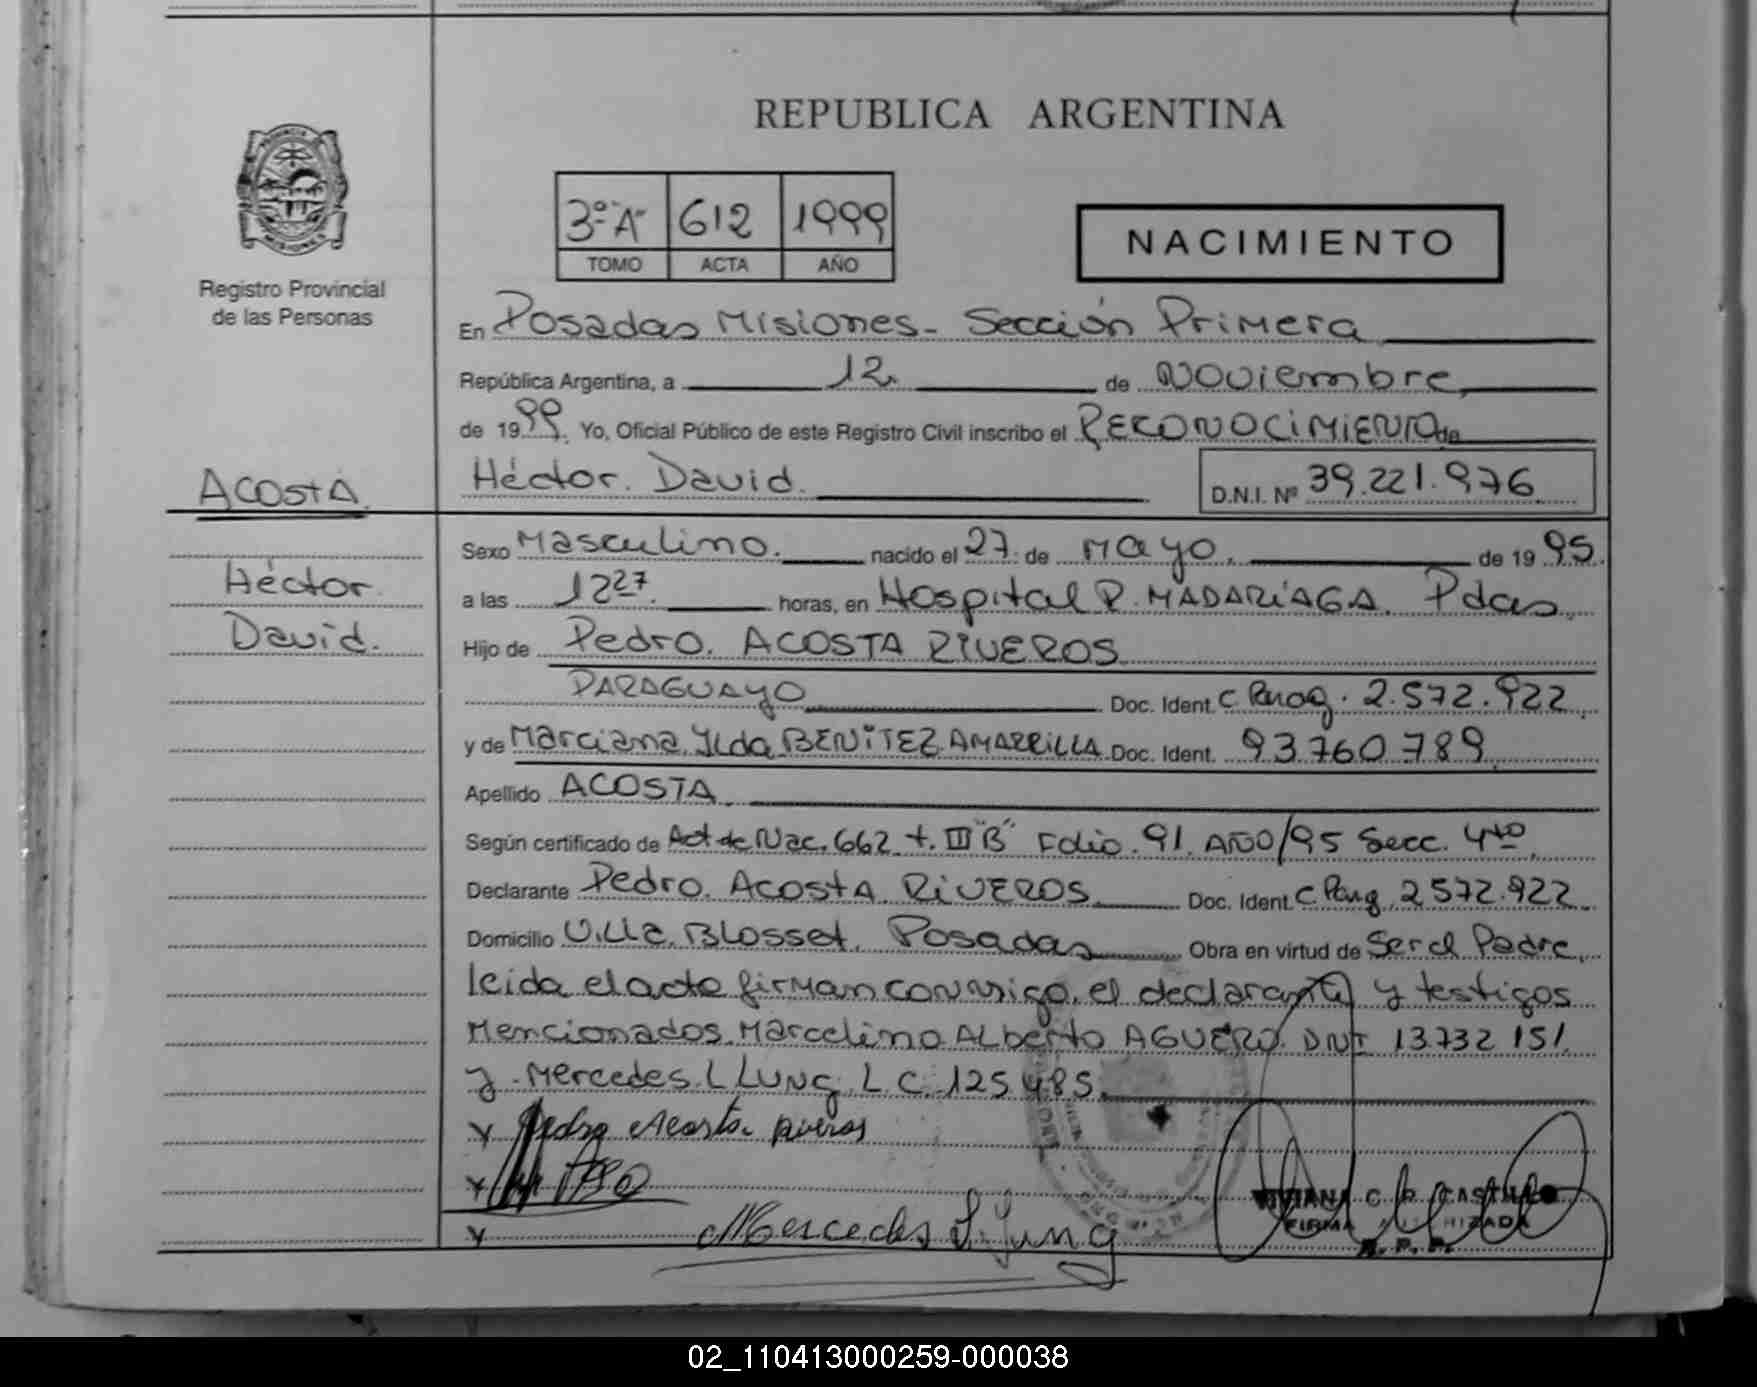 REPUBLICA ARGENTINA
3º "A" 612 1999
TOMO ACTA AÑO
NACIMIENTO
PROVINCIA
MISIONES
Registro Provincial
de las Personas
En Posadas Misiones - Sección Primera
República Argentina, a 12 de Noviembre
de 1999. Yo, Oficial Público de este Registro Civil inscribo el RECONOCIMIENTO de
ACOSTA
Héctor. David.
D.N.I. Nº 39.221.976
Sexo Masculino. nacido el 27 de Mayo. de 1995.
Héctor
David.
a las 12 27. horas, en Hospital R. MADARIAGA. Pdas.
Hijo de Pedro. ACOSTA RIVEROS
PARAGUAYO Doc. Ident. C Parag. 2.572.922
y de Marciana Ylda BENiTEZ AMARRILLA Doc. Ident. 93.760.789
Apellido ACOSTA
Según certificado de Act de Nac. 662 t. III "B" Folio. 91. AÑO/95 Secc. 4to
Declarante Pedro. ACOSTA RiVEROS Doc. Ident. C Parg. 2572.922
Domicilio Villa Blosset. Posadas Obra en virtud de Ser el Padre,
leida el acto firman conmigo, el declarante y testigos
Mencionados Marcelino ALberto AGUERO DNI 13.732 151
y Mercedes LLUNg L C. 125485.
x Pedro Acosta riveros
x
x Mercedes
FIRMA
R. P. P.
02_110413000259-000038